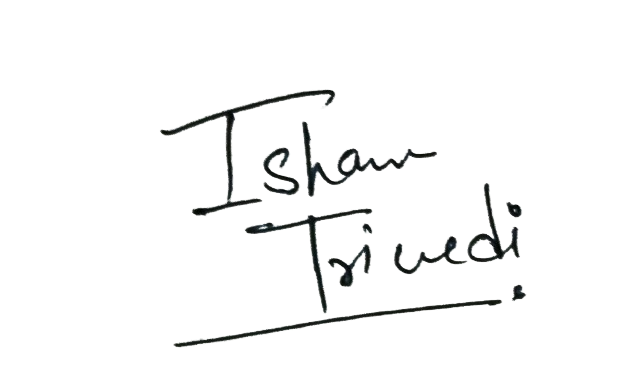 Ishan
Trivedi